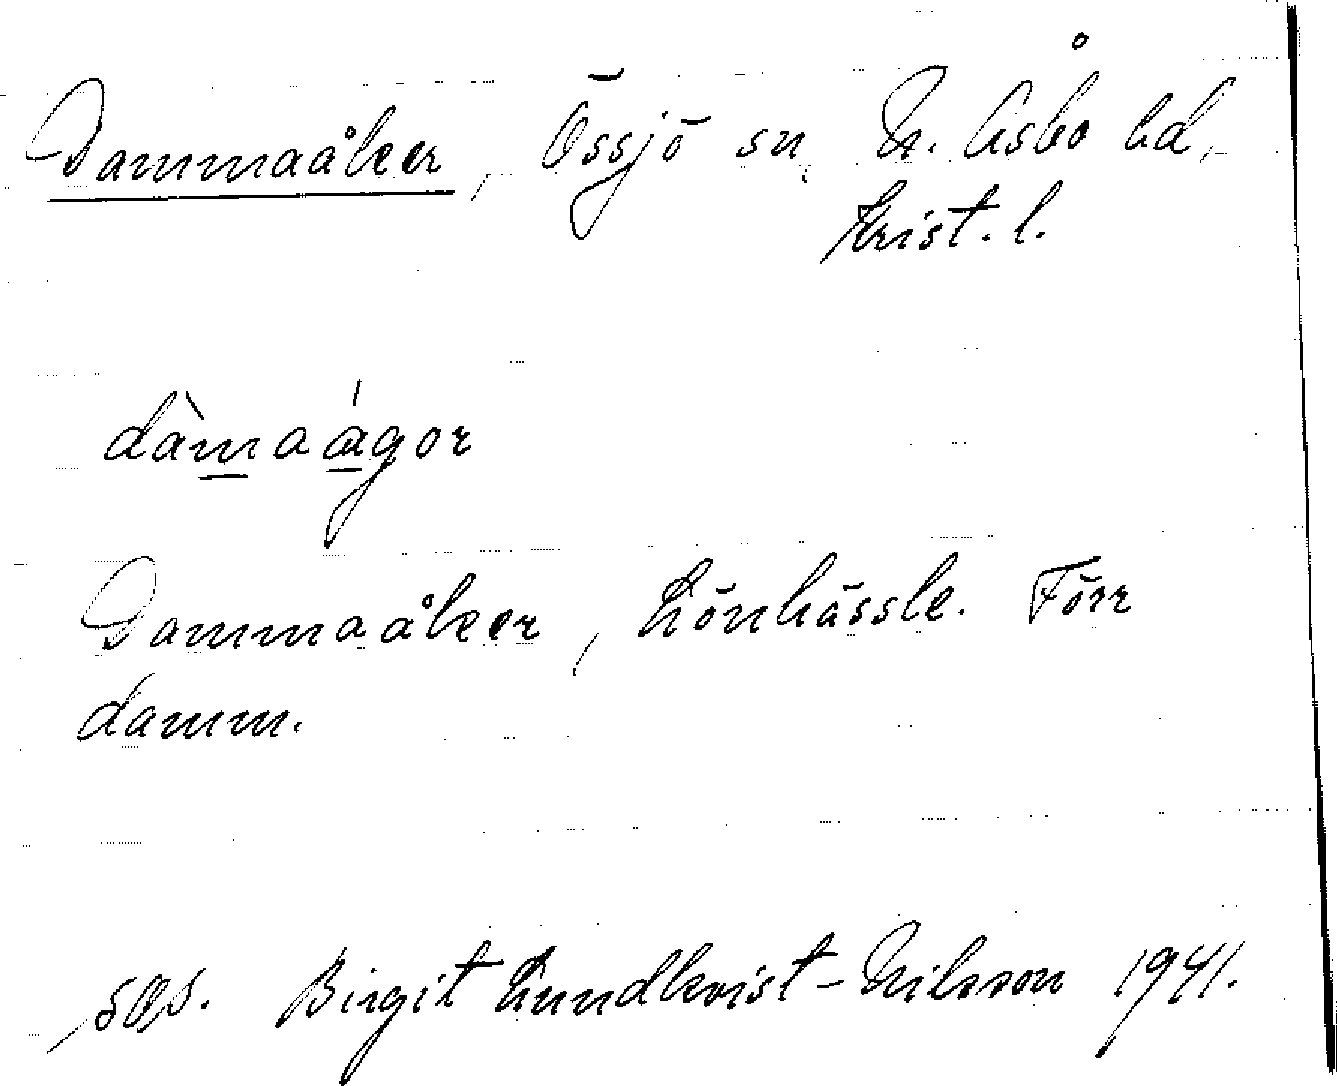 Dammaåker, Össjö sn, N. Åsbo hd,
Krist. l.
dàmaágor
Dammaåker, Lönhässle. Förr
damm.
Birgit Lundkvist-Nilsson 1941.